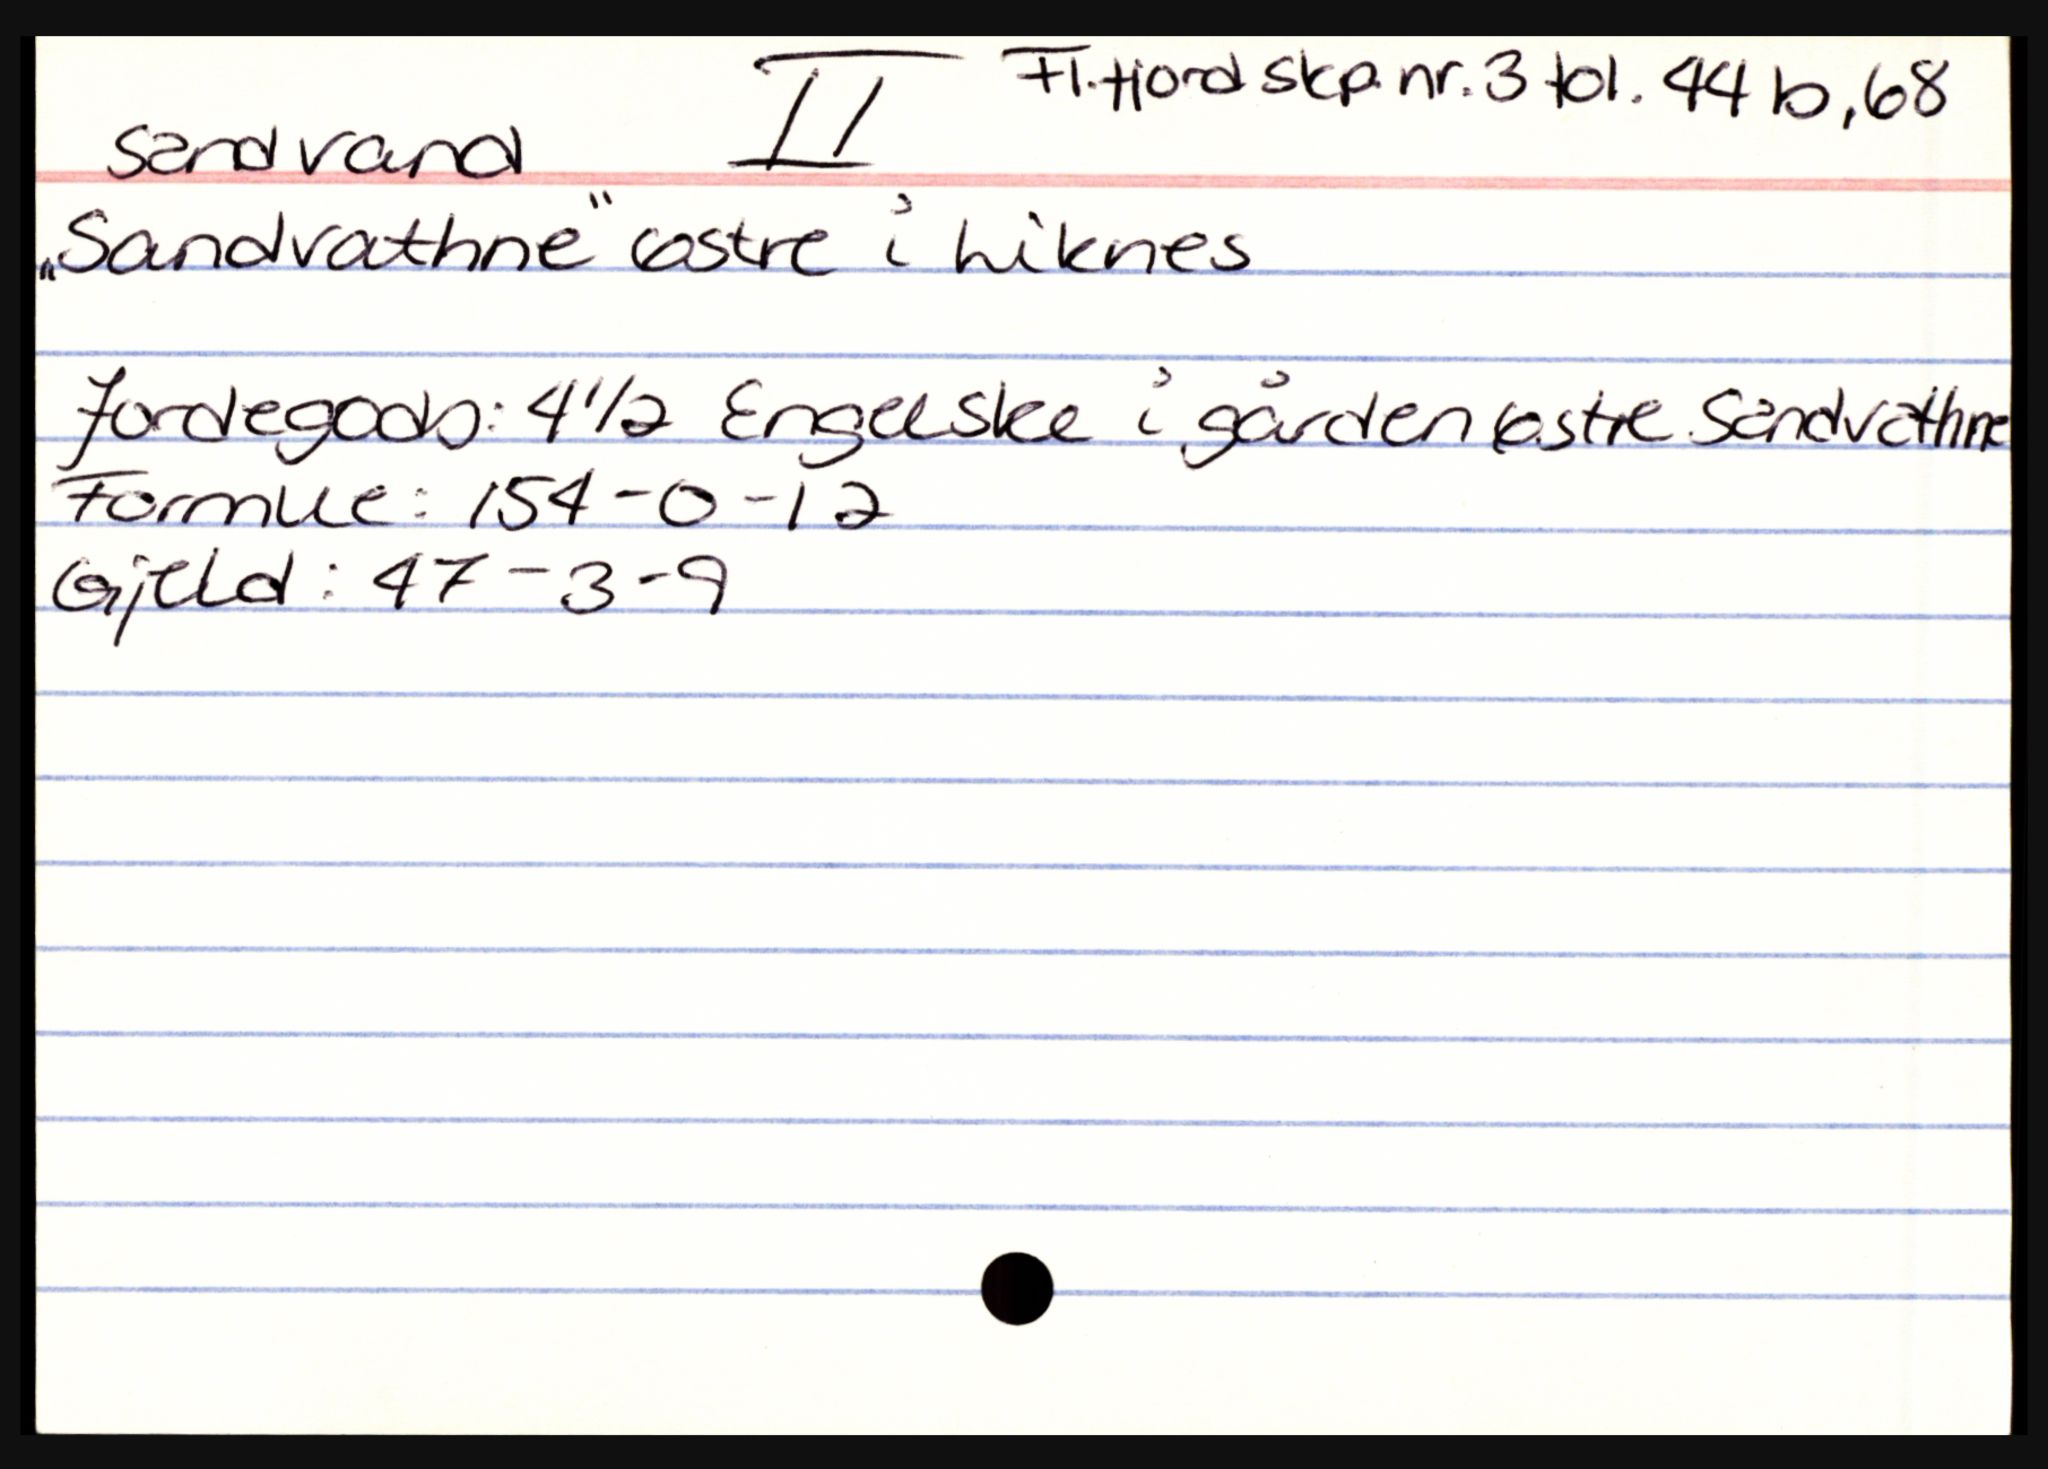 Fl.fjord skp. nr. 3 fol. 44 b, 68
Sandvand II
„Sandvathne“ østre i Liknes
Jordegods: 4 1/2 Engelske i gården østre Sandvathne
Formue: 154-0-12
Gjeld: 47-3-9